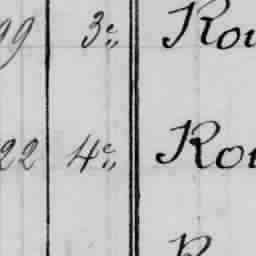 99 3e„ Rou
22 4e„ Rou
R